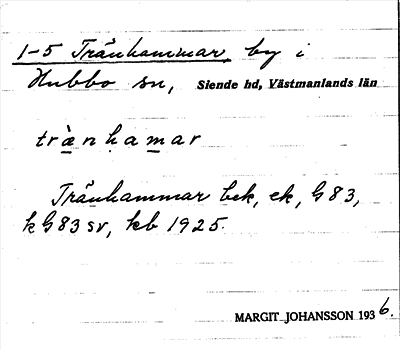 1-5 Tränhammar, by i
Hubbo sn, Siende hd, Västmanlands län
trànhamar
Tränhammar bek, ek, G83,
kG83 sv, kb 1925.
MARGIT JOHANSSON 1936.